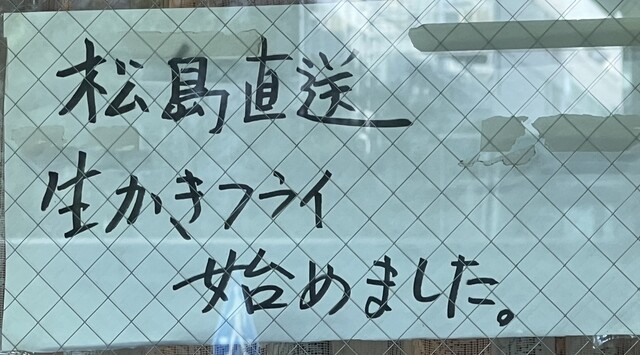 松島直送
生かきフライ
始めました。